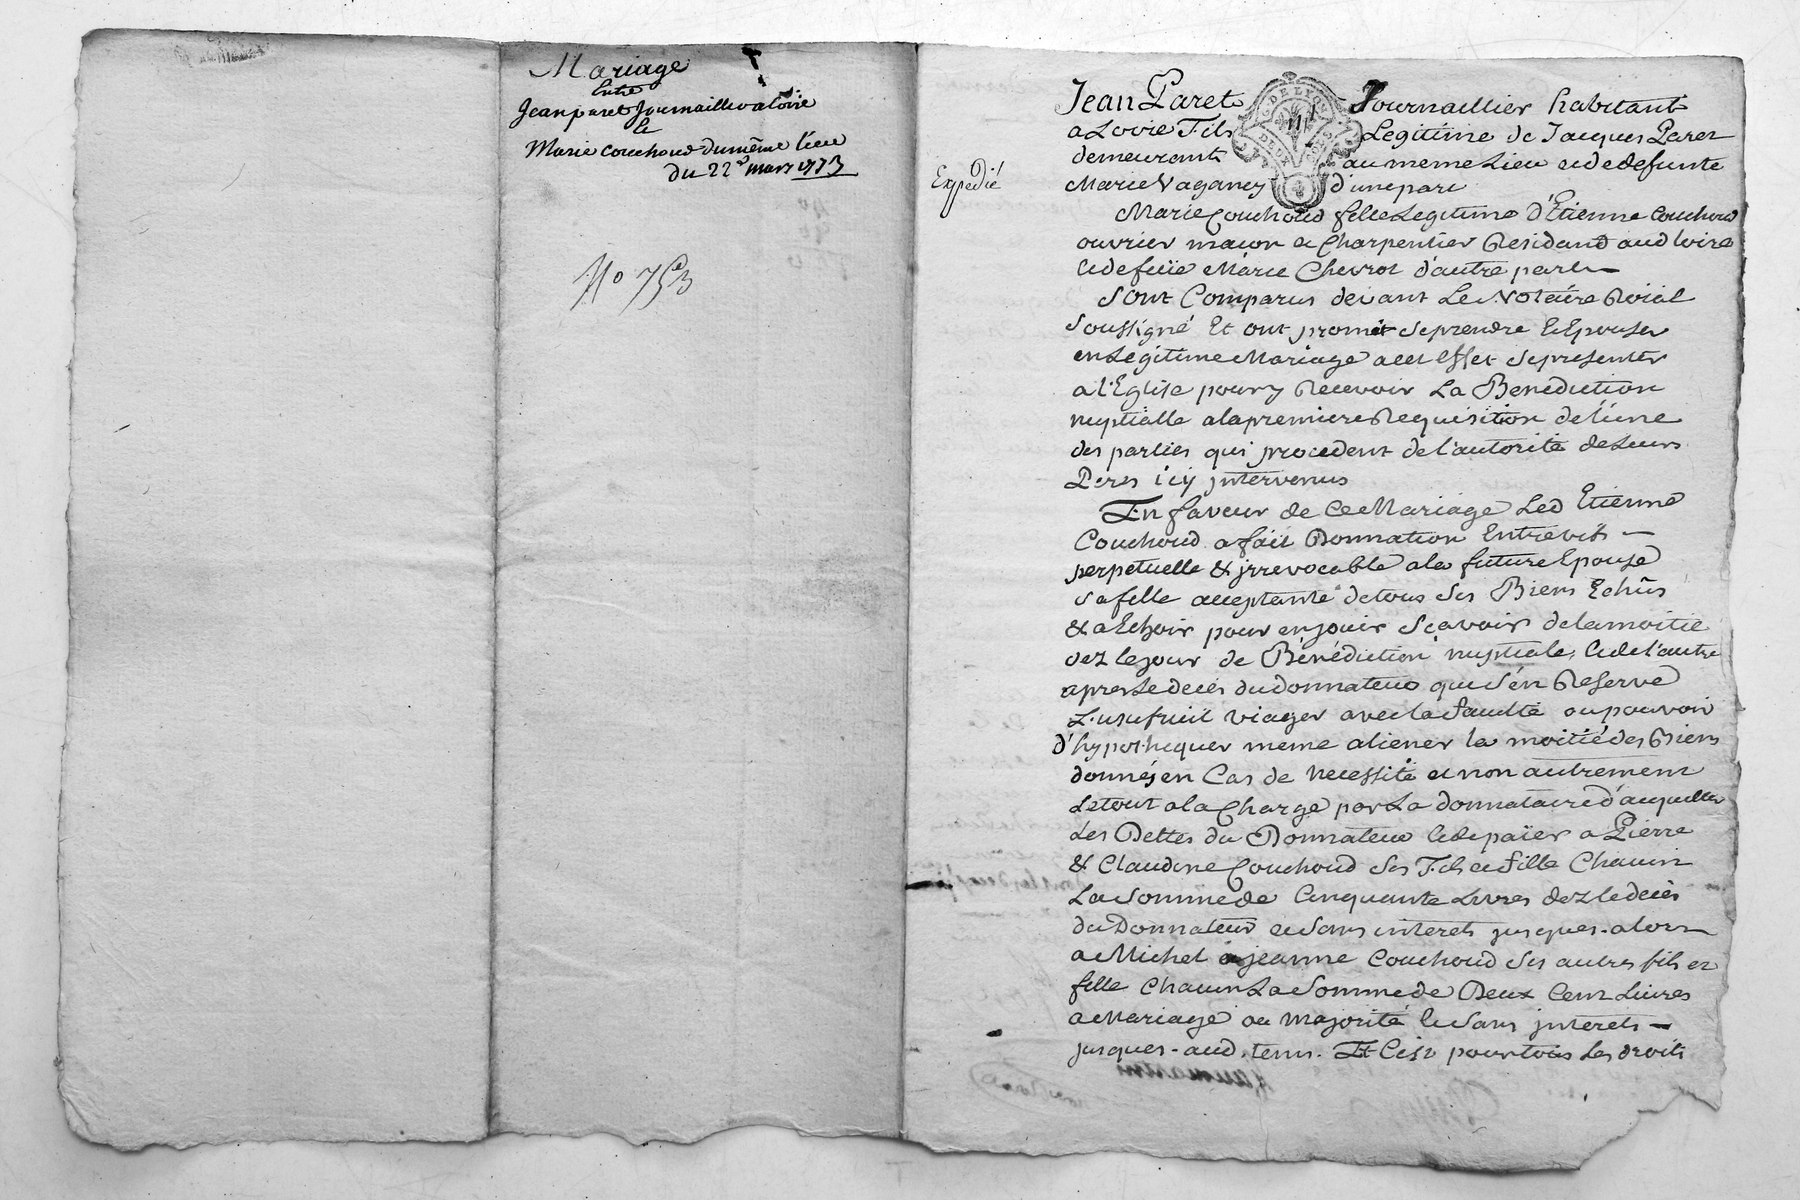 Mariage
Entre
Jean paret Journaillier a Loire
Et
Marie Couchoud du même lieu
du 22e mars 1773
No 753
Expedié
Jean Paret Journaillier habitant
a Loire Fils Legitime de Jacques Paret
demeurant au meme Lieu et de defunte
Marie Vaganey d'une part
Marie Couchoud fille Legitime d'Etienne Couchoud
ouvrier maçon et Charpentier Residant aud Loire
et defuïe Marie Chevrot d'autre part
Sont Comparus devant Le Notaire Roial
Soussigné Et ont promit se prendre et Epouser
en Légitime Mariage a cet effet se presenter
a l'Eglise pour y Recevoir La Benediction
nuptialle a la premiere Requisition de l'une
des parties qui procedent de l'autorité de Leurs
Peres icy intervenus
En faveur de ce Mariage Led Etienne
Couchoud a fait Donnation Entrevifs
perpetuelle & irrevocable a la future Epouse
sa fille acceptante de tous ses Biens Echûs
& a Echoir pour en jouir Sçavoir de la moitié
dez le jour de Bénédiction nuptiale, et de l'autre
apres Le deces du donnateur qui s'en Reserve
L'usufruit viager avec la faculté ou pouvoir
d'hypothequer meme aliener la moitié des Biens
donnés en Cas de necessité et non autrement
Le tout a la Charge par La donnataire d'acquitter
Les Dettes du Donnateur et de païer a Pierre
& Claudine Couchoud ses Fils et fille Chacun
La Somme de Cinquante Livres dez le deces
du Donnateur et sans interets jusques-alors
a Michel & jeanne Couchoud ses autres fils et
fille Chacun La Somme de Deux Cent Livres
a Mariage ou Majorité et sans interets
jusques-aud. tems. Et C'est pour tous Les droits